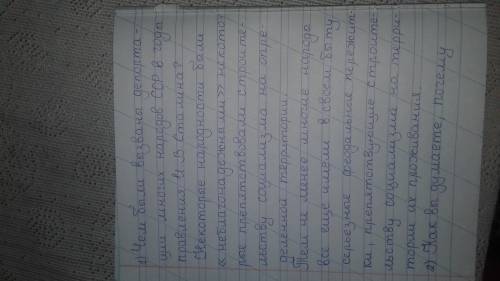 1) Чем была вызвана депорта-
ция многих народов ССР в года
правления И. В. Сталина?
Некоторые народности были
«неблагонадежными» некото-
рые препятствовали строите-
льству социализма на опре-
деленной территории.
Тем не менее многие народа
все еще имели в своем быту
серьезные феодальные пережит-
ки, препятствующие строите-
льству социализма на терри-
тории их проживания
2) Как вы думаете, почему